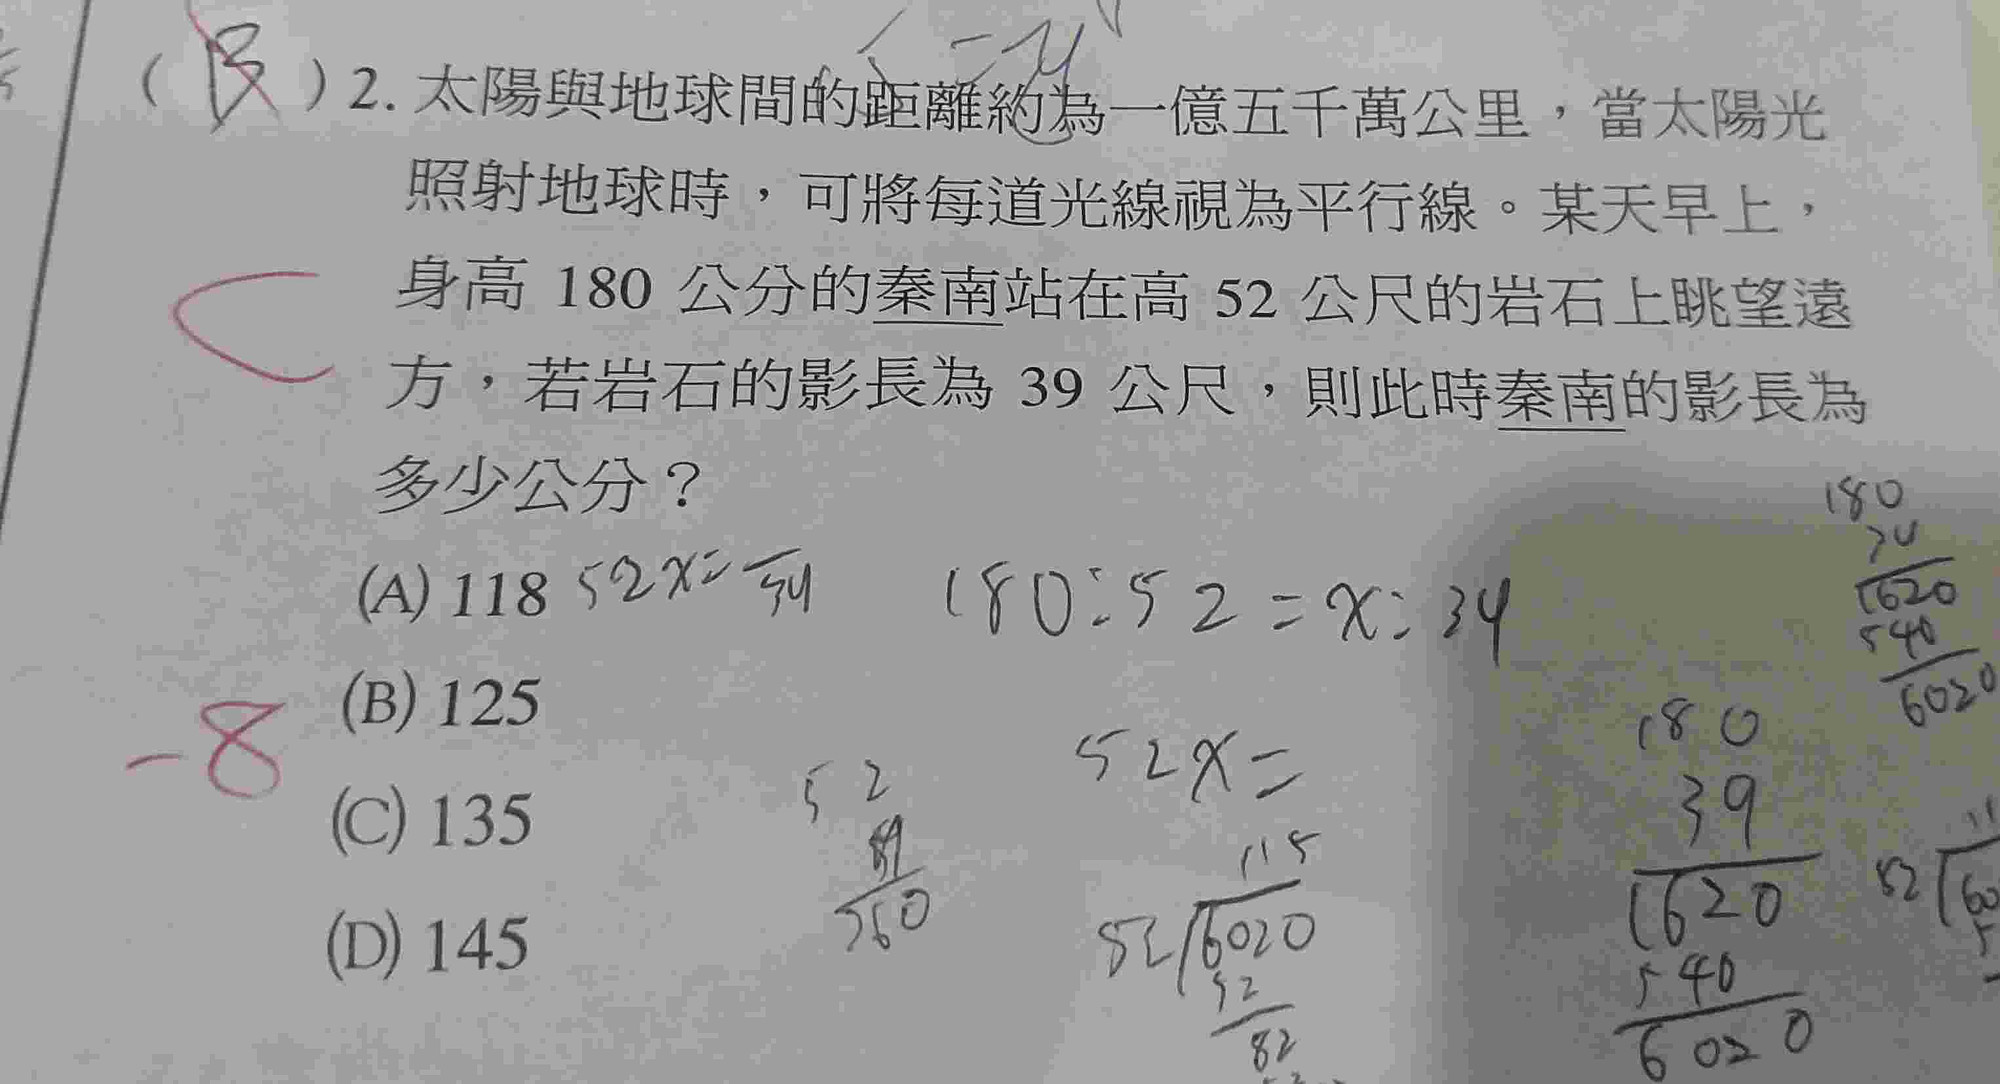 (B)2. 太陽與地球間的距離約為一億五千萬公里，當太陽光
照射地球時，可將每道光線視為平行線。某天早上，
身高 180 公分的秦南站在高 52 公尺的岩石上眺望遠
方，若岩石的影長為 39 公尺，則此時秦南的影長為
多少公分？
C
(A) 118 52x=
180:52=x:34
(B) 125
(C) 135
(D) 145
-8
52x=
52
560
115
52 6020
52
82
180
39
1620
540
6020
180
1620
540
6020
52